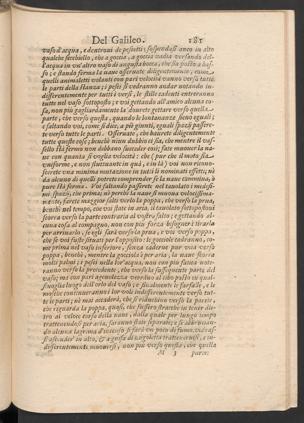 Del Galileo. 181
vaso d'acqua, e dentrovi de' pescetti; sospendasi anco in alto
qualche secchiello, che a goccia, a goccia vadia versando del-
l'acqua in un'altro vaso di angusta bocca, che sia posto a bas-
so; e stando ferma la nave osservate diligentemente, come
quelli animaletti volanti con pari velocità vanno verso tutte
le parti della stanza; i pesci si vedranno andar notando in-
differentemente per tutti i versi, le stille cadenti entreranno
tutte nel vaso sottoposto; e voi gettando all'amico alcuna co-
sa, non più gagliardamente la dovrete gettare verso quella
parte, che verso questa, quando le lontananze sieno eguali;
e saltando voi, come si dice, a piè giunti, eguali spazii passere-
te verso tutte le parti. Osservate, che havrete diligentemente
tutte queste cose; benchè niun dubbio ci sia, che mentre il vas-
sello stà fermo non debbano succeder così; fate muover la na-
ve con quanta si voglia velocità: che (pur che il moto sia
uniforme, e non fluttuante in quà, e in là) voi non ricono-
scerete una minima mutazione in tutti li nominati effetti; nè
da alcuno di quelli potrete comprender se la nave cammina, o
pure stà ferma. Voi saltando passerete nel tavolato i medesi-
mi spazii, che prima; nè perchè la nave si muova velocissima-
mente, farete maggior salti verso la poppa, che verso la prua,
benchè nel tempo, che voi state in aria, il tavolato sottopostovi
scorra verso la parte contraria al vostro salto; e gettando al-
cuna cosa al compagno, non con più forza bisognerà tirarla
per arrivarlo, se egli sarà verso la prua, e voi verso poppa,
che se voi fuste situati per l'opposito: le gocciole cadranno, co-
me prima nel vaso inferiore, senza caderne pur una verso
poppa, benchè, mentre la gocciola è per aria, la nave scorra
molti palmi; i pesci nella lor'acqua, non con più fatica note-
ranno verso la precedente, che verso la sussequente parte del
vaso; ma con pari agevolezza verranno al cibo posto su qual-
sivoglia luogo dell'orlo del vaso; e finalmente le farfalle, e le
mosche continueranno i lor voli indifferentemente verso tut-
te le parti; nè mai accaderà, che si riduchino verso la parete,
che riguarda la poppa, quasi, che fussero stracche in tener die-
tro al veloce corso della nave, dalla quale per lungo tempo
trattenendosi per aria, saranno state separate; e se abbrucian-
do alcuna lagrima d'incenso si farà un poco di fumo, vedras-
si ascender in alto, & a guisa di nugoletta trattenervisi, e in-
differentemente muoversi, non più verso questa, che quella
M 3 parte: